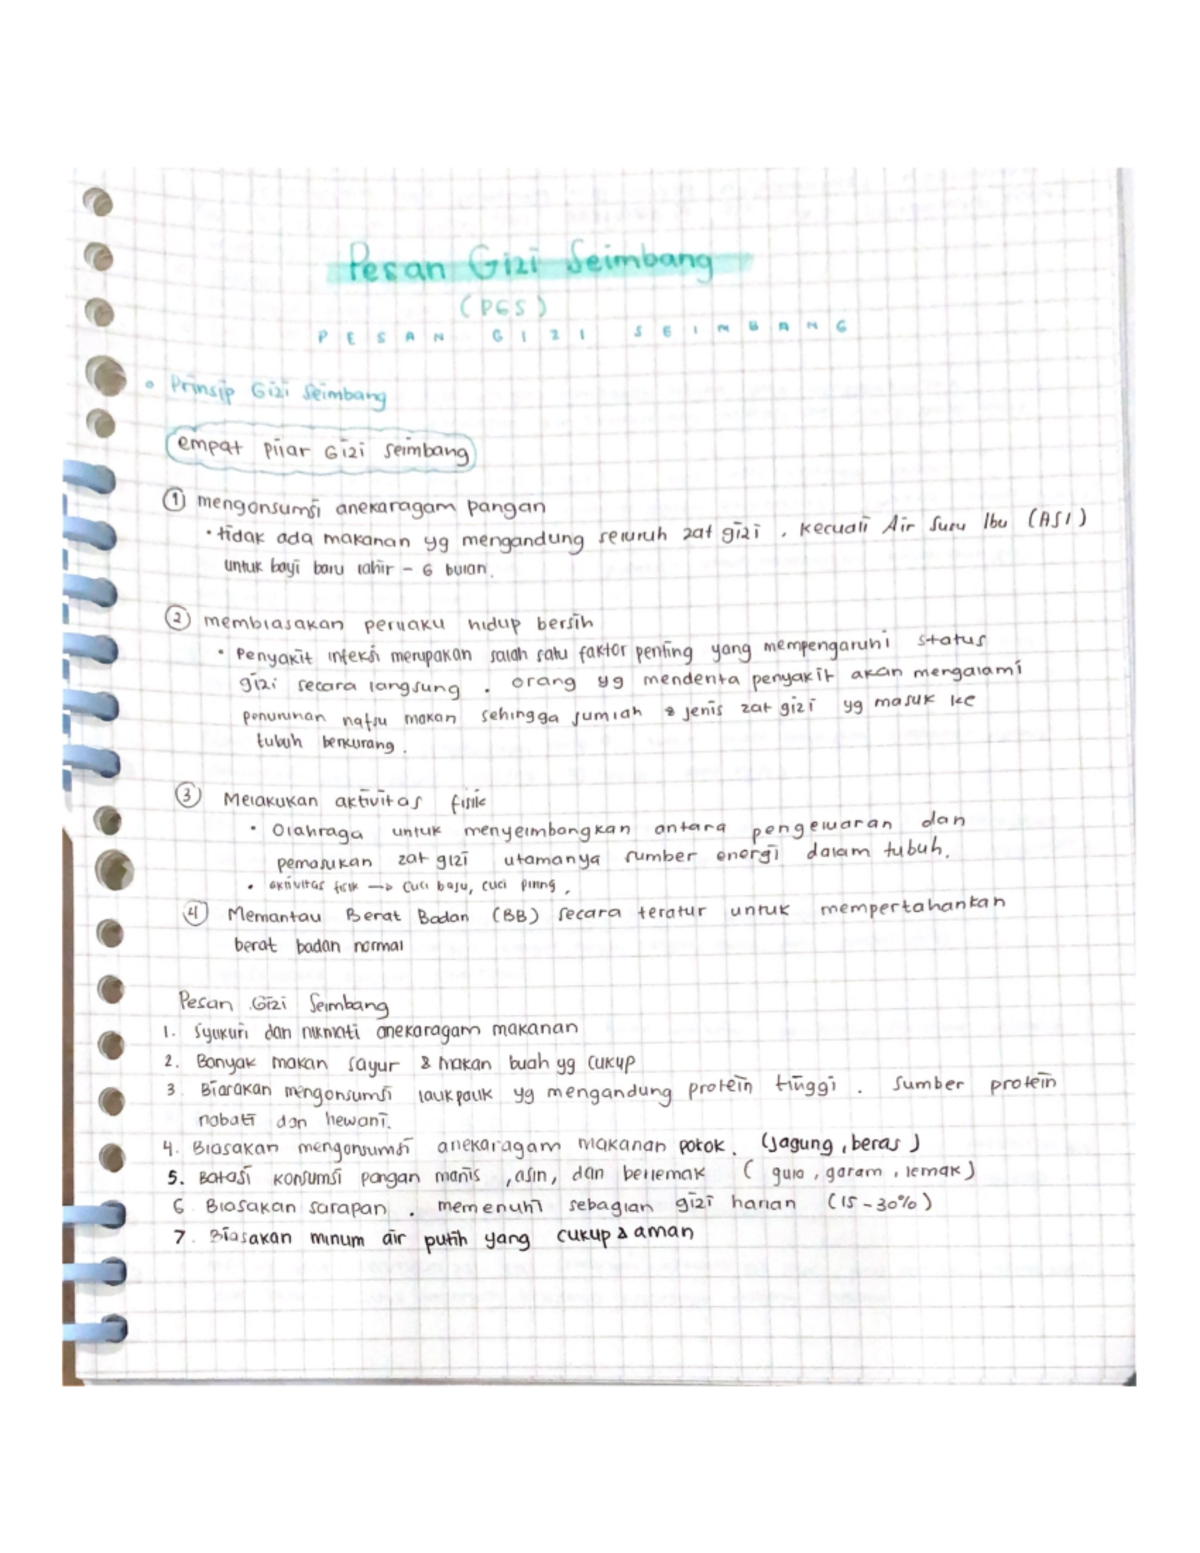 Pesan Gizi Seimbang
(PGS)
PESAN GIZI SEIMBANG
• Prinsip Gizi Seimbang
empat pilar Gizi seimbang
① mengonsumsi anekaragam pangan
• tidak ada makanan yg mengandung seluruh zat gizi, kecuali Air Susu Ibu (ASI)
untuk bayi baru lahir - 6 bulan.
② membiasakan perilaku hidup bersih
• Penyakit infeksi merupakan salah satu faktor penting yang mempengaruhi status
gizi secara langsung. orang yg menderita penyakit akan mengalami
penurunan nafsu makan sehingga jumlah & jenis zat gizi yg masuk ke
tubuh berkurang.
③ Melakukan aktivitas fisik
• Olahraga untuk menyeimbangkan antara pengeluaran dan
pemasukan zat gizi utamanya sumber energi dalam tubuh.
• aktivitas fisik → cuci baju, cuci piring,
④ Memantau Berat Badan (BB) secara teratur untuk mempertahankan
berat badan normal
Pesan Gizi Seimbang
1. Syukuri dan nikmati anekaragam makanan
2. Banyak makan sayur & makan buah yg cukup
3. Biasakan mengonsumsi laukpauk yg mengandung protein tinggi. Sumber protein
nabati dan hewani.
4. Biasakan mengonsumsi anekaragam makanan pokok. (Jagung, beras)
5. Batasi konsumsi pangan manis, asin, dan berlemak (gula, garam, lemak)
6. Biasakan sarapan. memenuhi sebagian gizi harian (15-30%)
7. Biasakan minum air putih yang cukup & aman